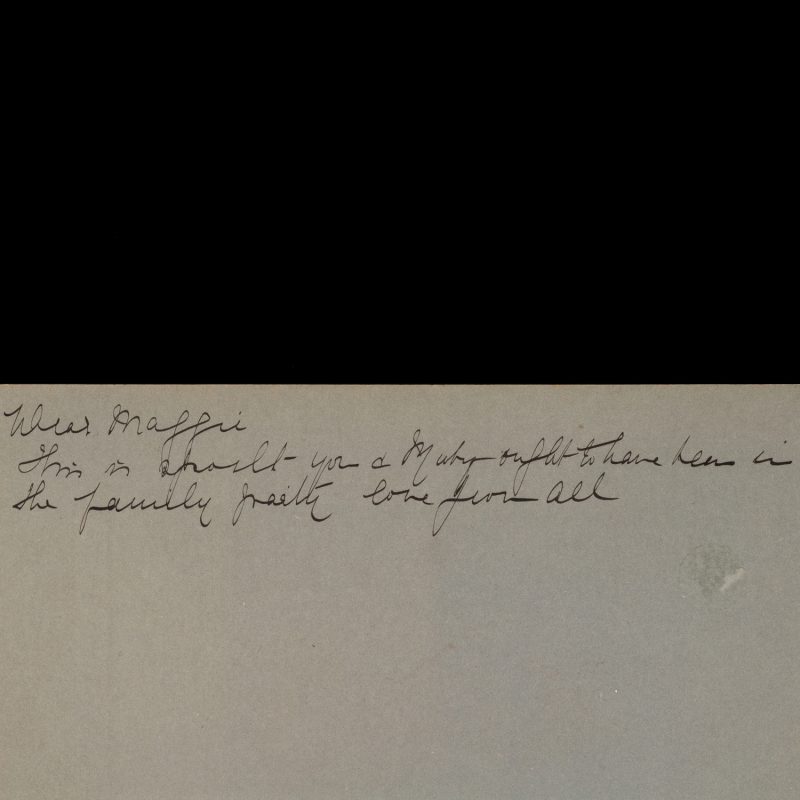 Dear Maggie
This is spoilt you & Ruby ought to have been in
the family love from all